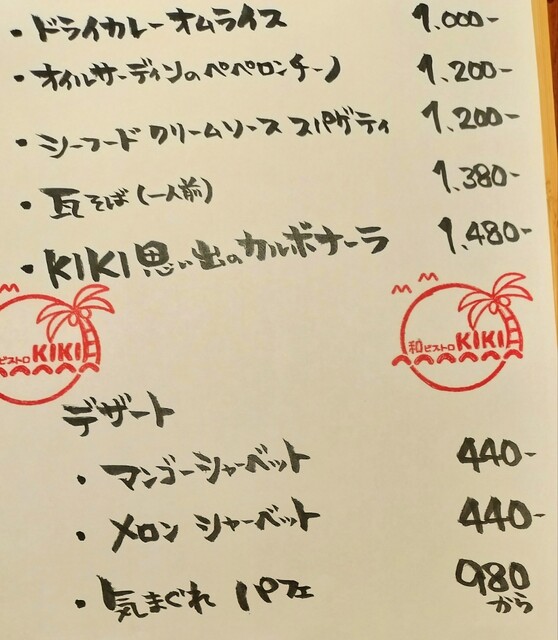 ・ドライカレーオムライス 1.000-
・オイルサーディンのペペロンチーノ 1.200-
・シーフードクリームソーススパゲティ 1.200-
・瓦そば(一人前) 1.380-
・KIKI思い出のカルボナーラ 1.480-
ビストロKIKI
和ビストロKIKI
デザート
・マンゴーシャーベット 440-
・メロンシャーベット 440-
・気まぐれ パフェ 980
から